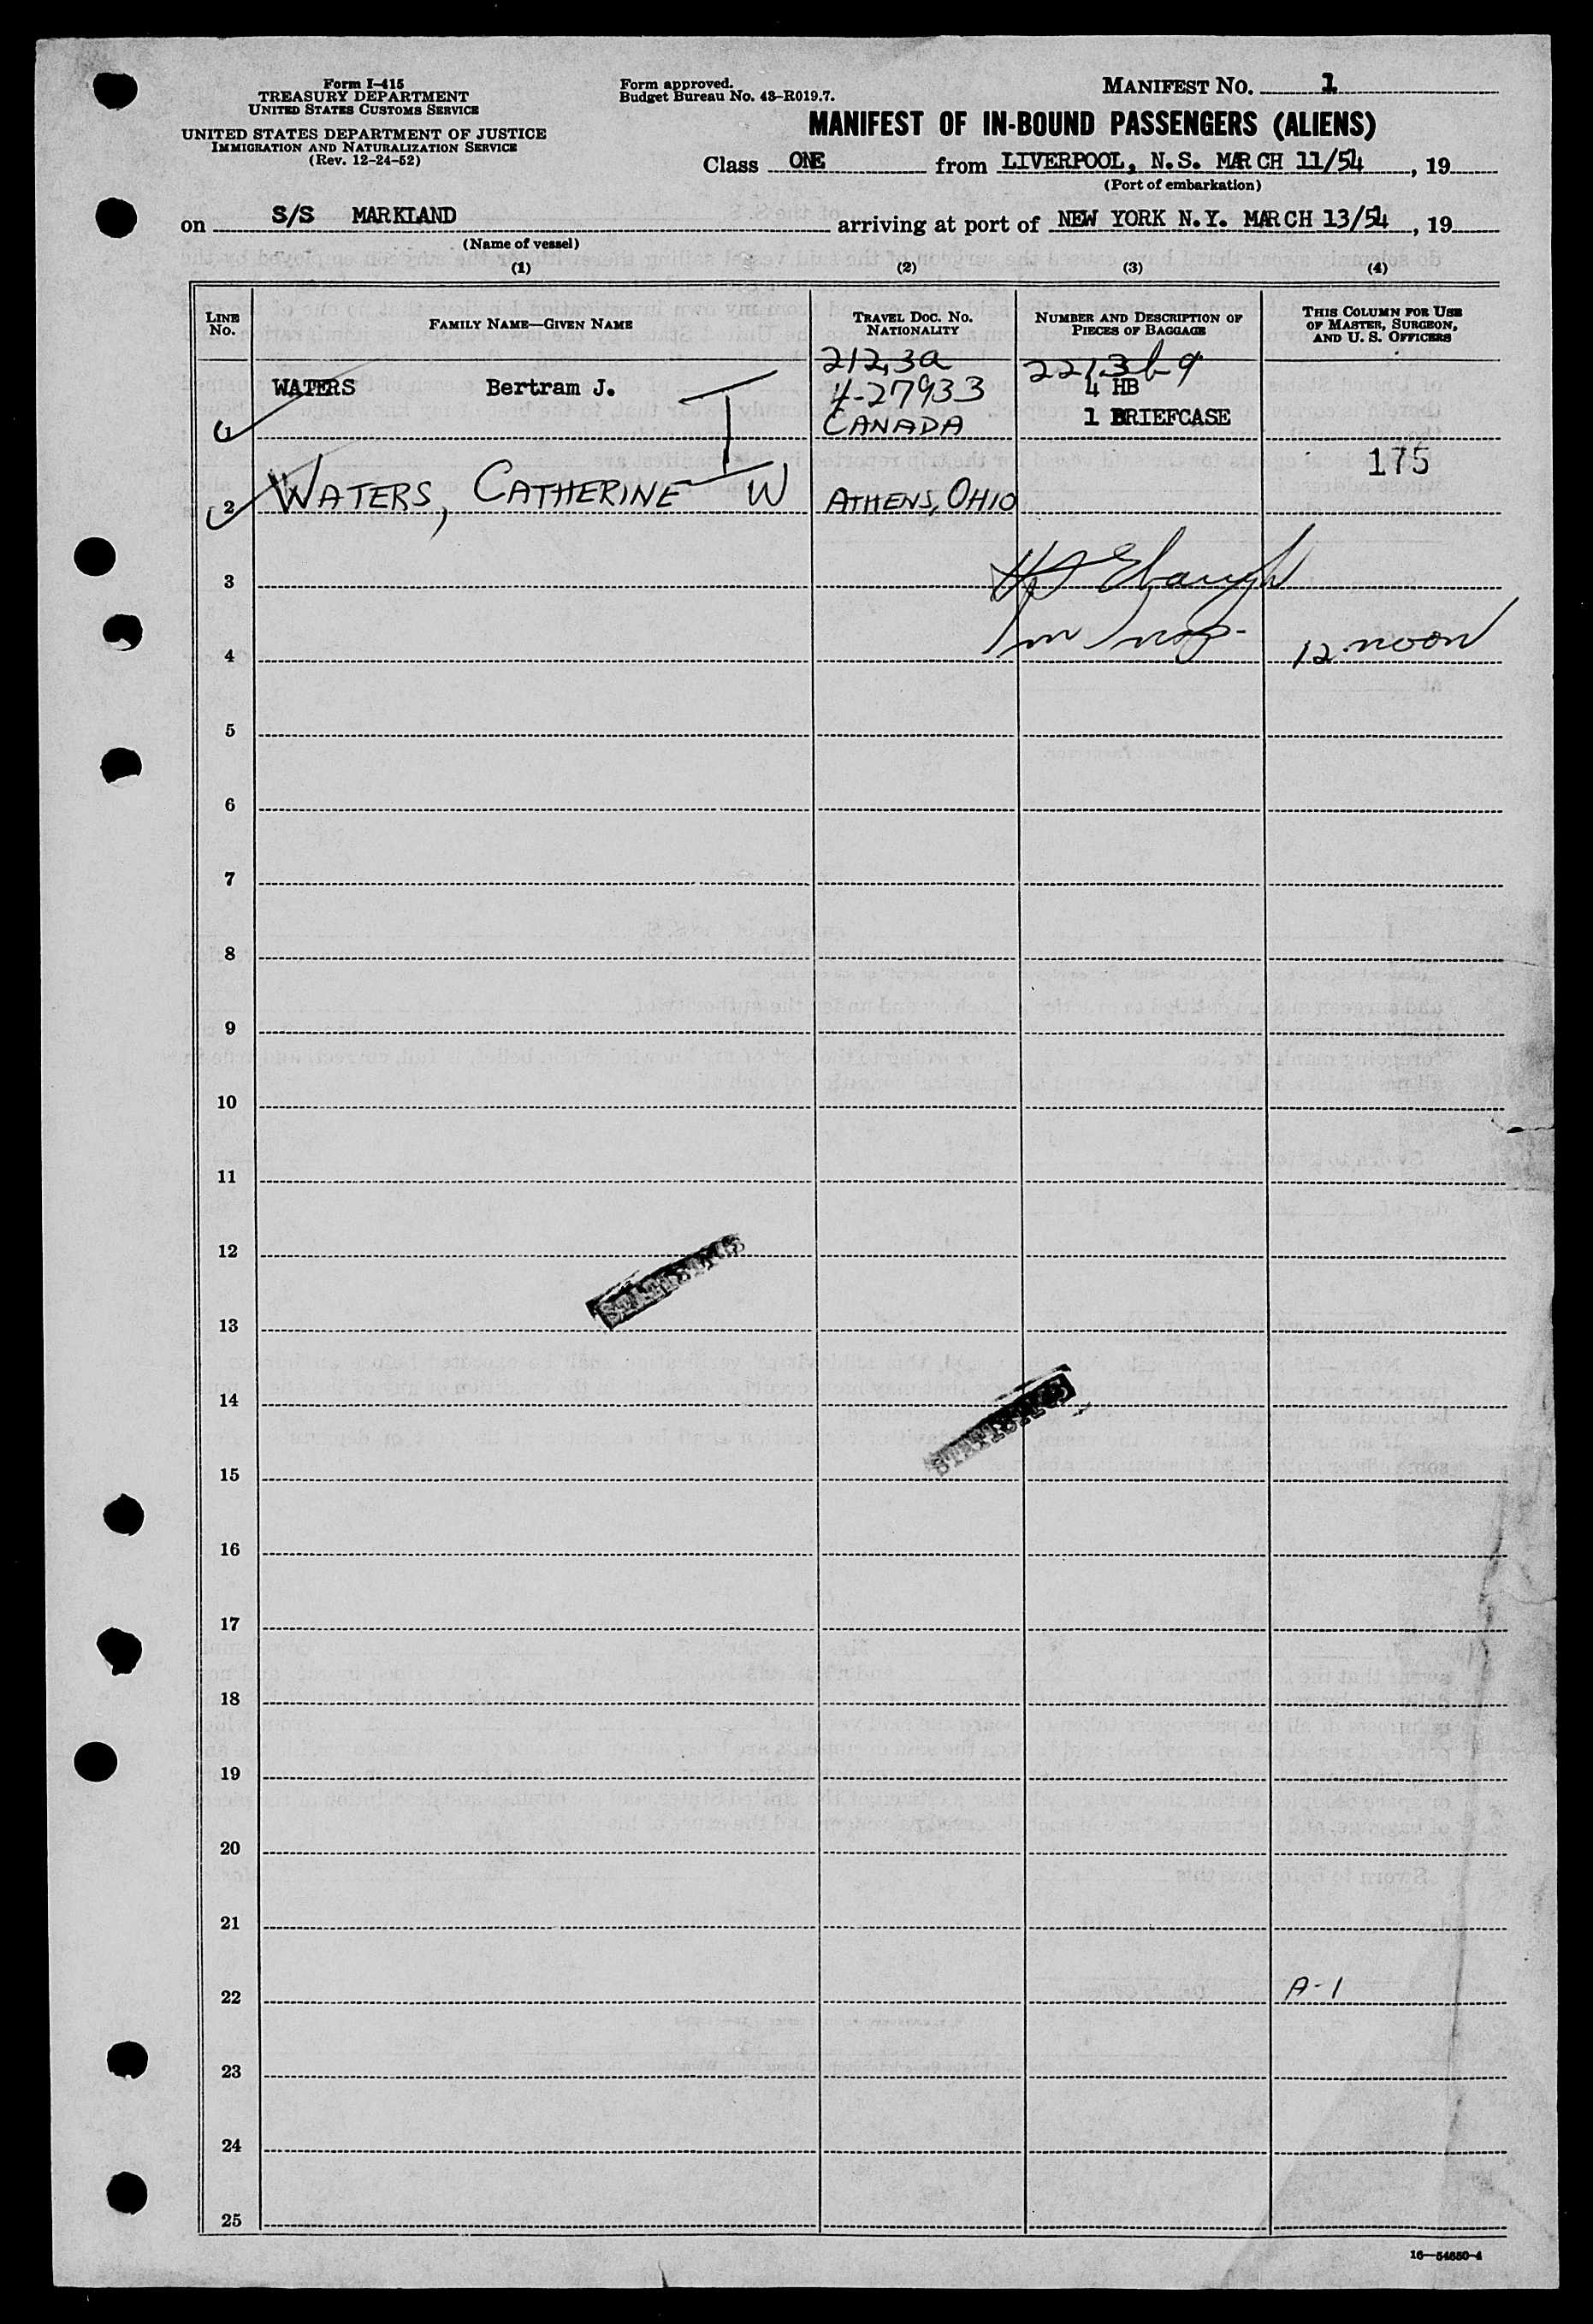 Form I-415
TREASURY DEPARTMENT
UNITED STATES CUSTOMS SERVICE
UNITED STATES DEPARTMENT OF JUSTICE
IMMIGRATION AND NATURALIZATION SERVICE
(Rev. 12-24-52)
Form approved.
Budget Bureau No. 43-R019.7.
MANIFEST NO. 1
MANIFEST OF IN-BOUND PASSENGERS (ALIENS)
Class ONE from LIVERPOOL, N.S. MARCH 11/54, 19
(Port of embarkation)
on S/S MARKLAND arriving at port of NEW YORK N.Y. MARCH 13/54, 19
(Name of vessel)
(1) (2) (3) (4)
LINE No.
FAMILY NAME—GIVEN NAME
TRAVEL DOC. NO. NATIONALITY
NUMBER AND DESCRIPTION OF PIECES OF BAGGAGE
THIS COLUMN FOR USE OF MASTER, SURGEON, AND U. S. OFFICERS
212.3a
WATERS Bertram J. 4-27933 4 HB
1 CANADA 1 BRIEFCASE
175
2 WATERS, CATHERINE W ATHENS, OHIO
3
Im Insp.
4 12 noon
5
6
7
8
9
10
11
12
13
14
STATISTICS
15
16
17
18
19
20
21
22 A-1
23
24
25
16—54650-4